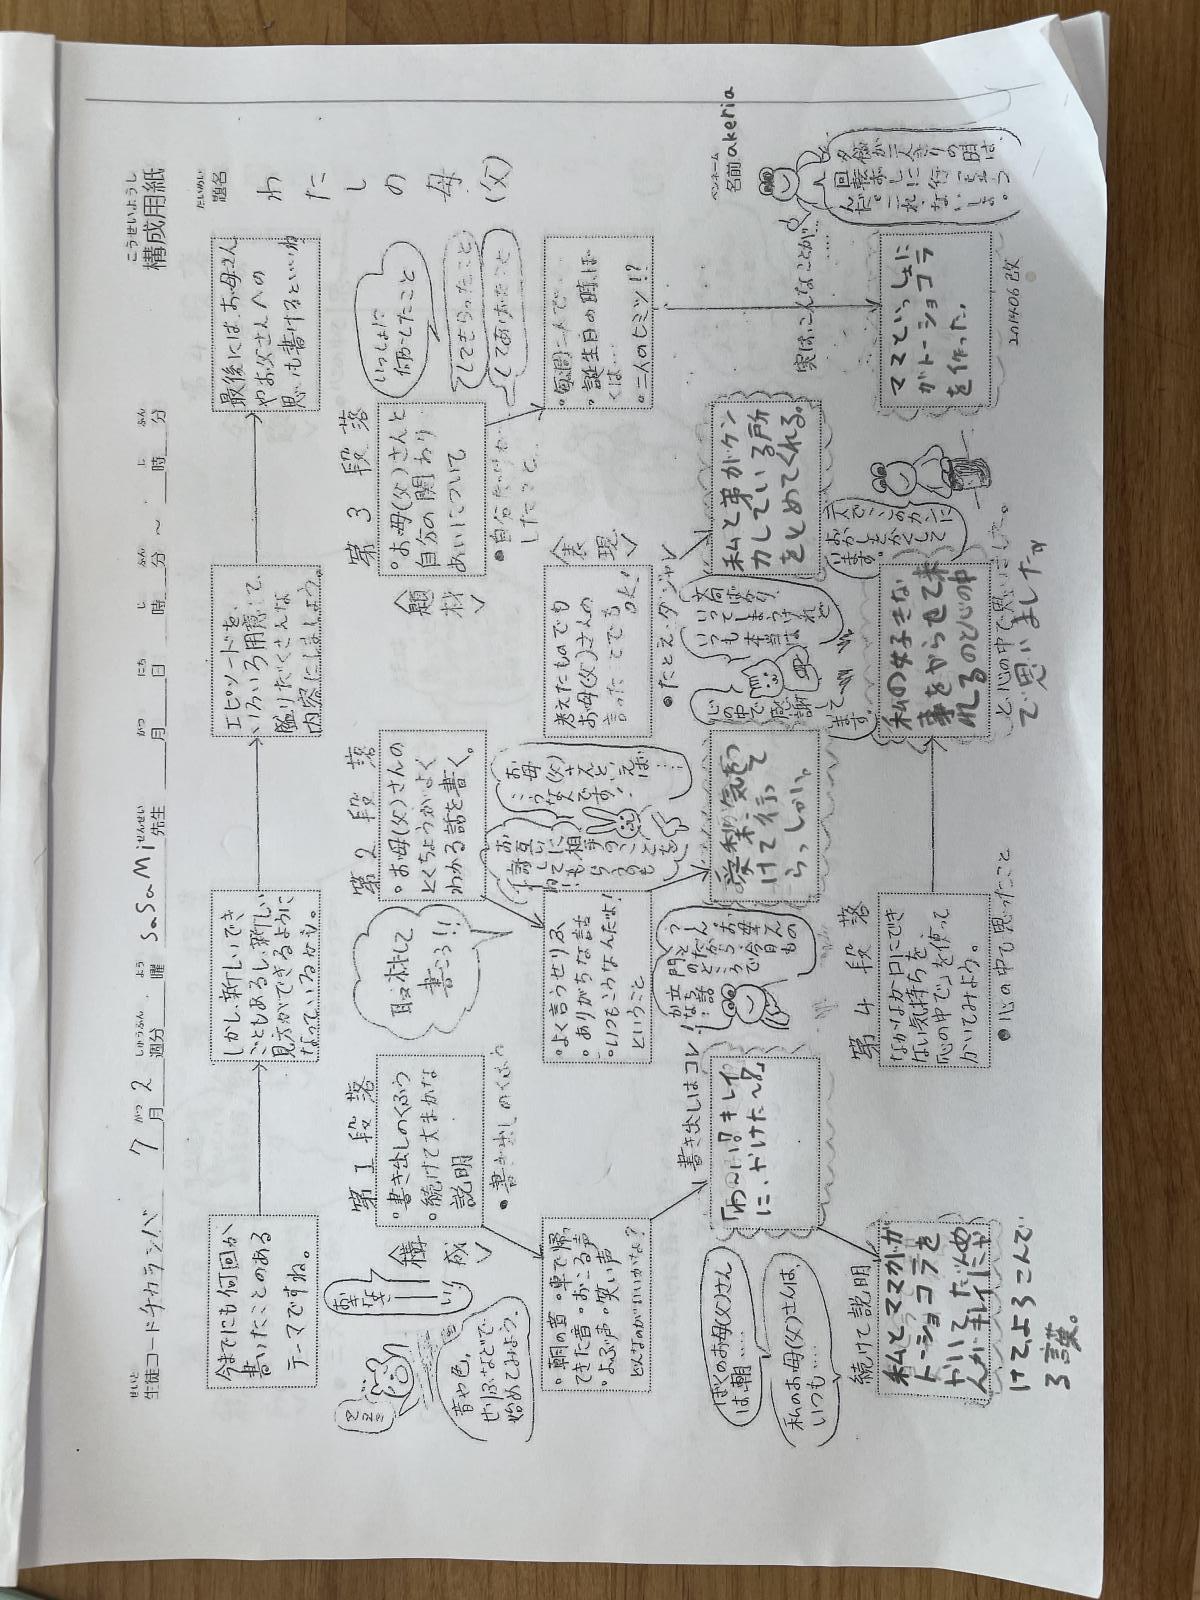 構成用紙
こうせいようし
生徒コード チカランバ 7月 2週分 曜 SaSaMi 先生 月 日 時 分 〜 時 分
題名 わたしの母(父)
ペンネーム
名前 akeria
今までにも何回か
書いたことのある
テーマですね。
しかし、新しいでき
ごともあるし、新しい
見方ができるように
なっているかも。
エピソードを、
いろいろ用意して、
盛りだくさんな
内容にしましょう。
最後には、お母さん
やお父さんへの
思いも書けるといいね
<構成>
第1段落
・書き出しのくふう
・続けて大まかな
説明
・書き出しのくふう
音や色、
せりふなどで
始めてみよう。
・朝の音・車で帰っ
てきた音・おこる声
・よぶ声・笑い声
どんなのがいいかな?
書き出しはコレ!
「わ〜い!?キレイ
に、やけた〜?」
ぼくのお母(父)さん
は朝……
私のお母(父)さんは、
いつも……
続けて説明
私とママがガ
トーショコラを
やいてたんや
んがキレイにや
けて、よろこんで
る言葉。
取材して
書こう!!
<題材>
第2段落
・お母(父)さんの
とくちょうがよく
わかる話を書く。
お母(父)
さんと、いえば
こうな人です!
・よく言うせりふ
・ありがちな話
・いつもこうなんだよ!
ということ
愛莉、気をつ
けて行って
らっしゃい。
<表現>
考えたものでも
お母(父)さんの
言ったことでもOK!
・たとえ・ダジャレ
文句ばかり
いってしまうけれど
いつも本当は
心の中で感謝してます。
第3段落
・お母(父)さんと
自分の関わり
あいについて
・自分だけが
したこと
いっしょに
何かしたこと
してもらったこと
してあげたこと
・毎週二人で…
・誕生日の時、ぼ
くは…
・二人のヒミツ!?
私と弟がケン
カしている所
をとめてくれる。
実は、こんなことが…
ママといっしょに
ガトーショコラ
を作った。
二人で、このカンに
おかしをかくして
います。
第4段落
なかなか口にでき
ない気持ちを、
「心の中で」を使って
かいてみよう。
・心の中で思ったこと
私の好きな
事をやらせて来
れるのと心の中
で思いました。
と心の中で思いました。
201406改